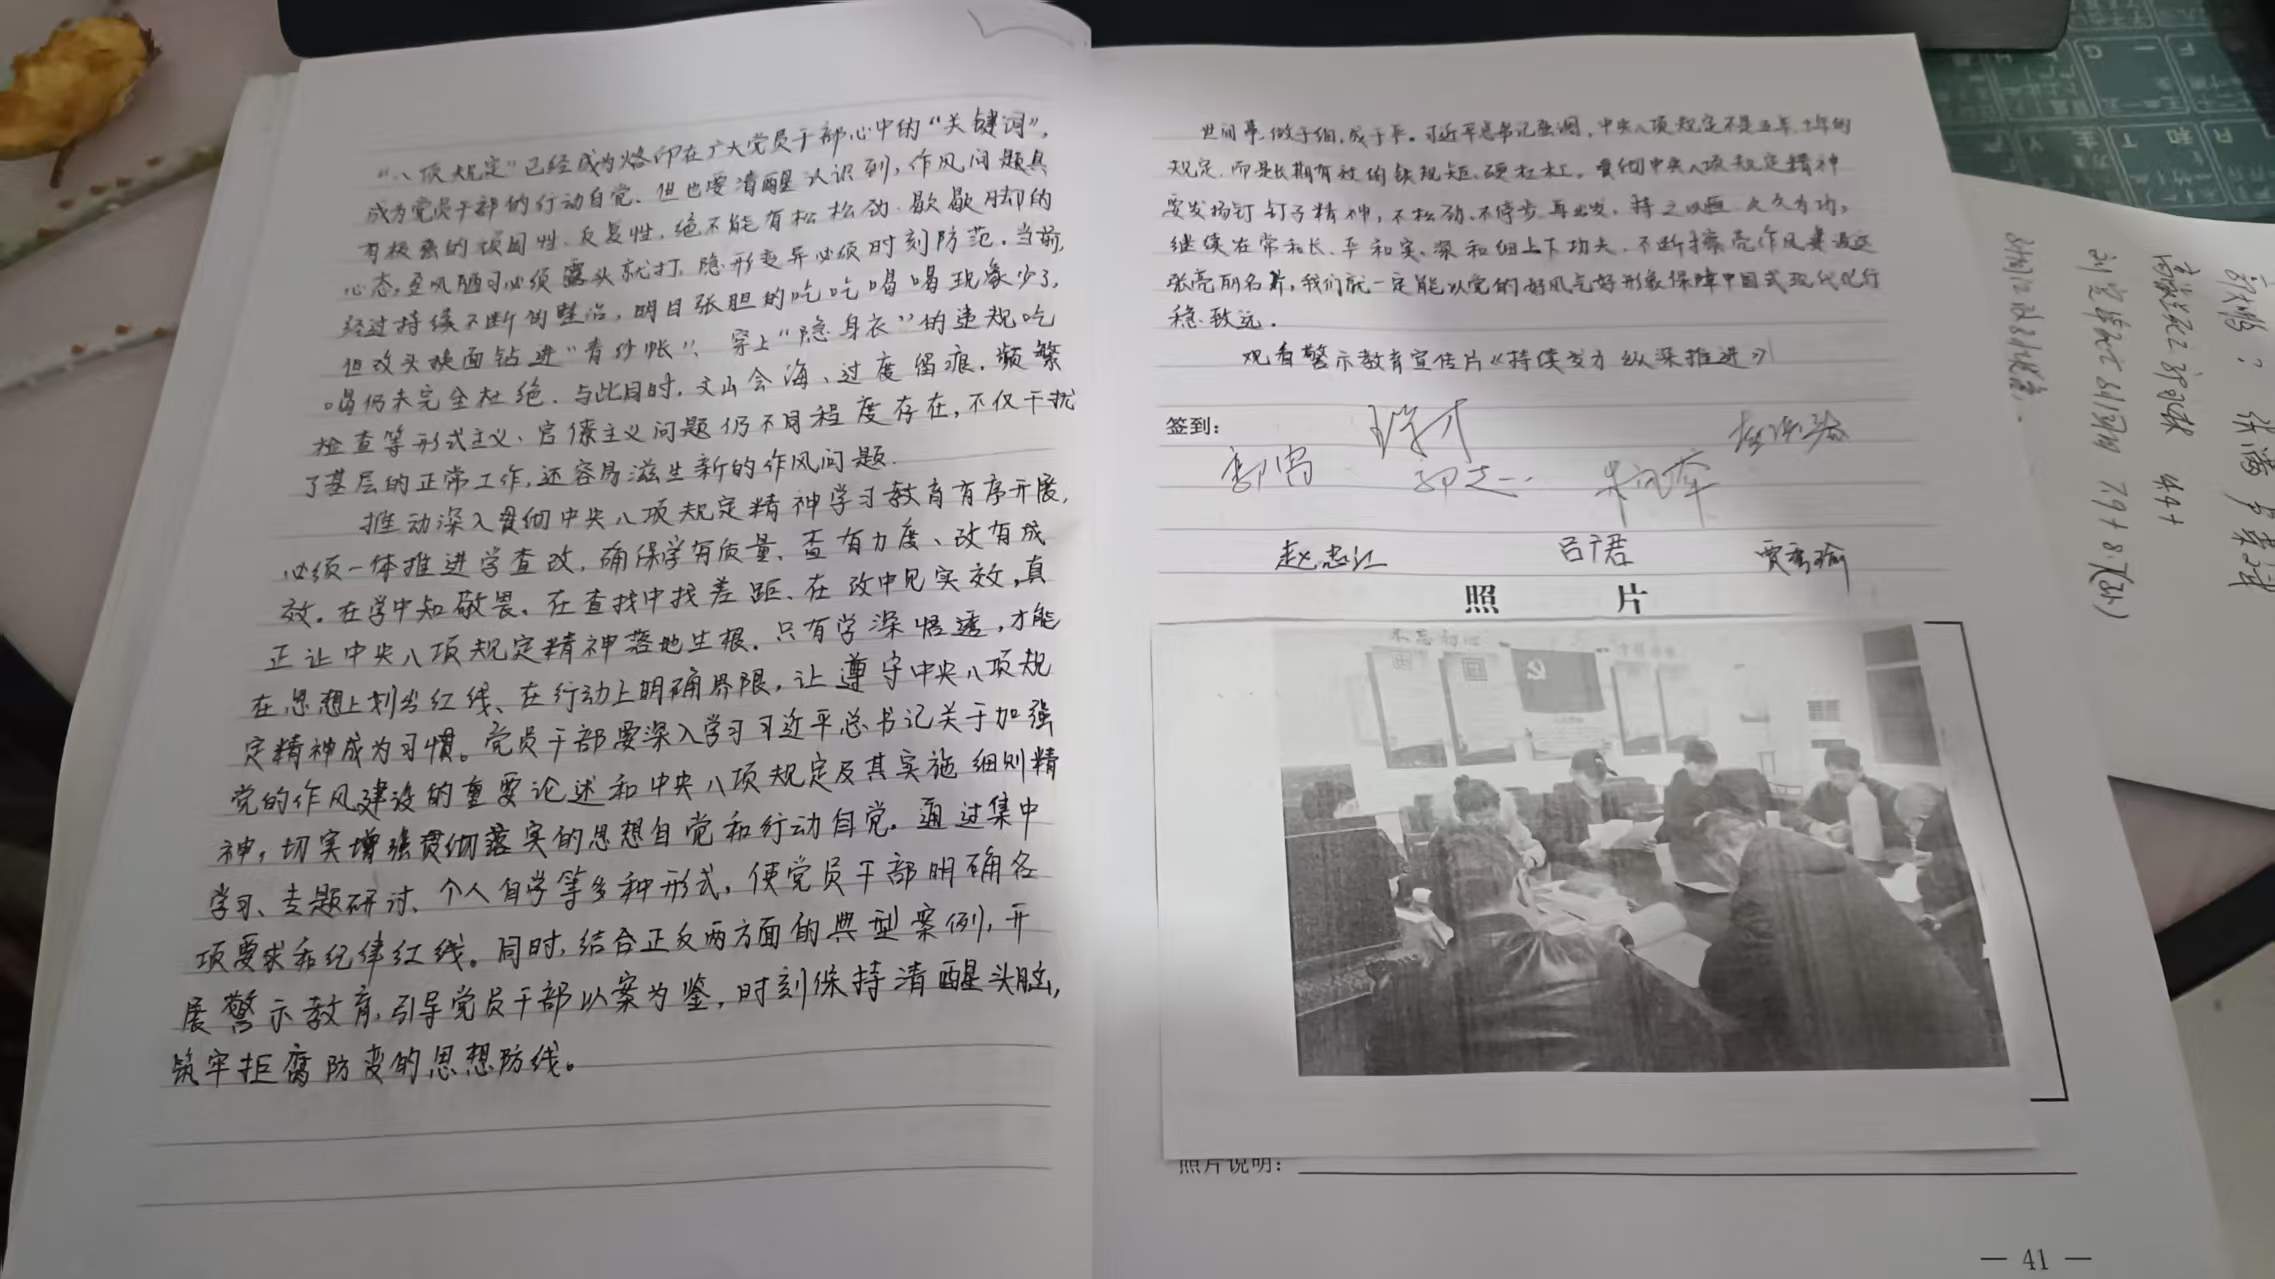 "八项规定"已经成为烙印在广大党员干部心中的"关键词",
成为党员干部的行动自觉.但也要清醒认识到,作风问题具
有极强的顽固性、反复性,绝不能有松松劲、歇歇脚的
心态,歪风陋习必须露头就打,隐形变异必须时刻防范.当前,
经过持续不断的整治,明目张胆的吃吃喝喝现象少了,
但改头换面钻进"青纱帐"、穿上"隐身衣"的违规吃
喝仍未完全杜绝.与此同时,文山会海、过度留痕.频繁
检查等形式主义、官僚主义问题仍不同程度存在,不仅干扰
了基层的正常工作,还容易滋生新的作风问题.
推动深入贯彻中央八项规定精神学习教育有序开展,
必须一体推进学查改,确保学有质量、查有力度、改有成
效.在学中知敬畏、在查找中找差距、在改中见实效,真
正让中央八项规定精神落地生根.只有学深悟透,才能
在思想上划出红线、在行动上明确界限,让遵守中央八项规
定精神成为习惯。党员干部要深入学习习近平总书记关于加强
党的作风建设的重要论述和中央八项规定及其实施细则精
神,切实增强贯彻落实的思想自觉和行动自觉.通过集中
学习、专题研讨、个人自学等多种形式,使党员干部明确各
项要求和纪律红线。同时,结合正反两方面的典型案例,开
展警示教育,引导党员干部以案为鉴,时刻保持清醒头脑,
筑牢拒腐防变的思想防线。
世间事,做于细,成于严.习近平总书记强调,中央八项规定不是五年、十年的
规定,而是长期有效的铁规矩、硬杠杠.贯彻中央八项规定精神
要发扬钉钉子精神,不松劲、不停步、再出发,持之以恒、久久为功,
继续在常和长、严和实、深和细上下功夫,不断擦亮作风建设这
张亮丽名片,我们就一定能以党的好风气好形象保障中国式现代化行
稳致远.
观看警示教育宣传片《持续发力 纵深推进》
签到:
赵忠江 吕广君 贾秀瑜
照 片
不忘初心
照片说明:
— 41 —